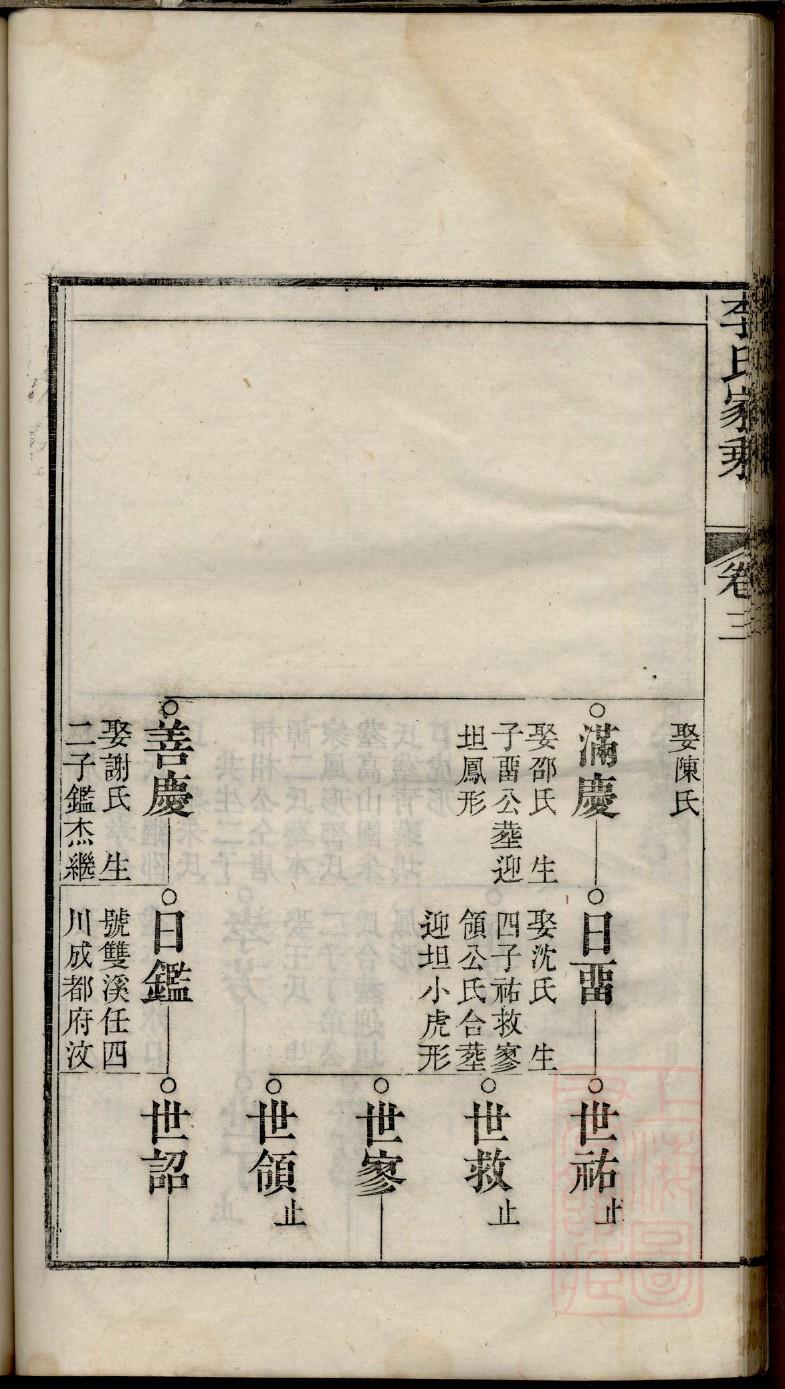 李氏家乘
卷三
娶陳氏
滿慶
娶邵氏 生
子畱公塟迎
坦鳳形
善慶
娶謝氏 生
二子鑑杰繼
日畱
娶沈氏 生
四子祐救寥
領公氏合塟
迎坦小虎形
日鑑
號雙溪任四
川成都府汶
世祐止
世救止
世寥
世領止
世詔